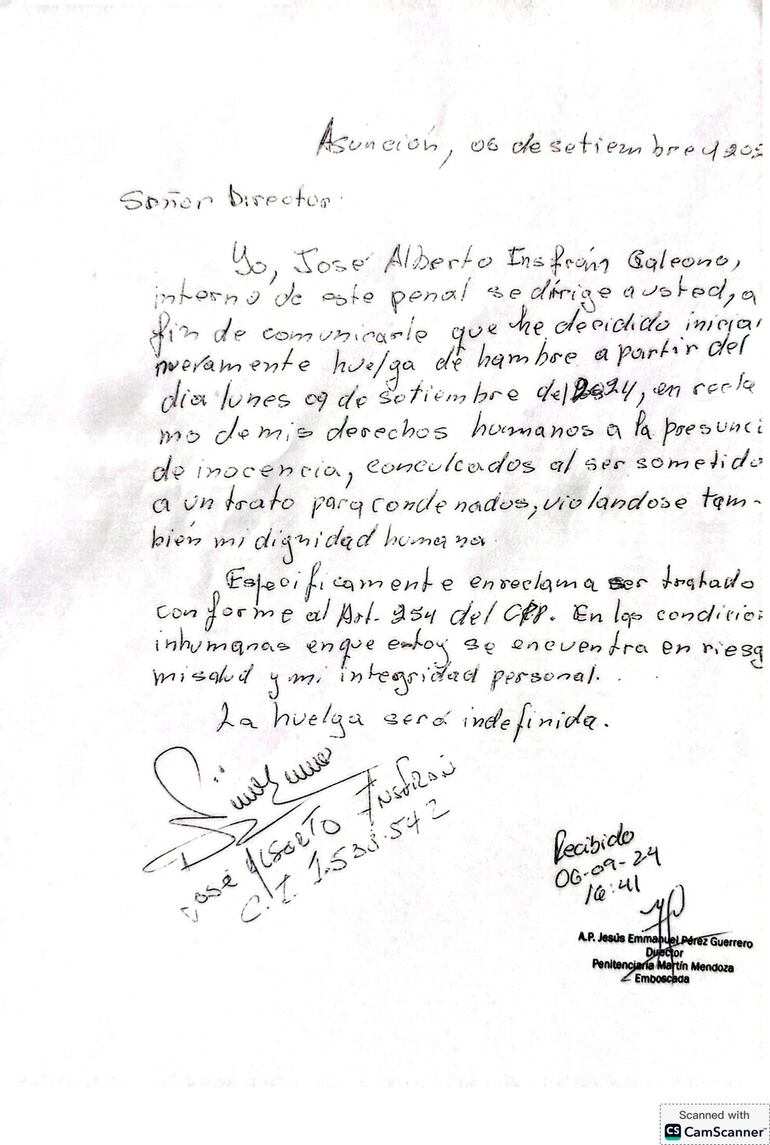 Asunción, 06 de setiembre d 202
Señor Director:
Yo, José Alberto Insfrán Galeano,
interno de este penal se dirige a usted, a
fin de comunicarle que he decidido inicia
nuevamente huelga de hambre a partir del
día lunes 09 de setiembre del 2024, en recla
mo de mis derechos humanos a la presunci
de inocencia, conculcados al ser sometido
a un trato para condenados, violandose tam-
bién mi dignidad humana.
Especificamente en reclama ser tratado
conforme al Art. 254 del CPP. En las condicio
inhumanas en que estoy se encuentra en riesg
mi salud y mi integridad personal.
La huelga será indefinida.
José Alberto Insfrán
C.I. 1.538.542
Recibido
06-09-24
16:41
A.P. Jesús Emmanuel Pérez Guerrero
Director
Penitenciaría Martín Mendoza
Emboscada
Scanned with
CS CamScanner